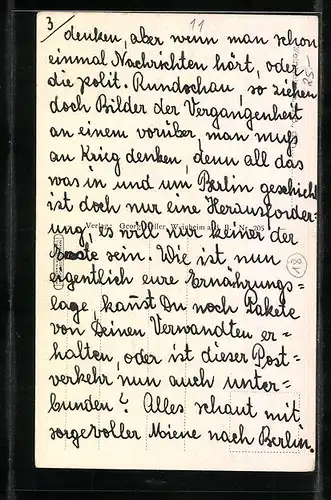 3
11
denken, aber wenn man schon
einmal Nachrichten hört, oder
die polit. Rundschau, so ziehen
doch Bilder der Vergangenheit
an einem vorüber, man muß
an Krieg denken, denn all das
was in und um Berlin geschieht
ist doch nur eine Herausforder-
ung, es will nur keiner der
Erste sein. Wie ist nun
eigentlich eure Ernährungs-
lage, kannst Du noch Pakete
von Deinen Verwandten er-
halten, oder ist dieser Post-
verkehr nun auch unter-
bunden? Alles schaut mit
sorgevoller Miene nach Berlin.
Verlag: Georg
Weinheim a. d. B. Nr. 205
25.-